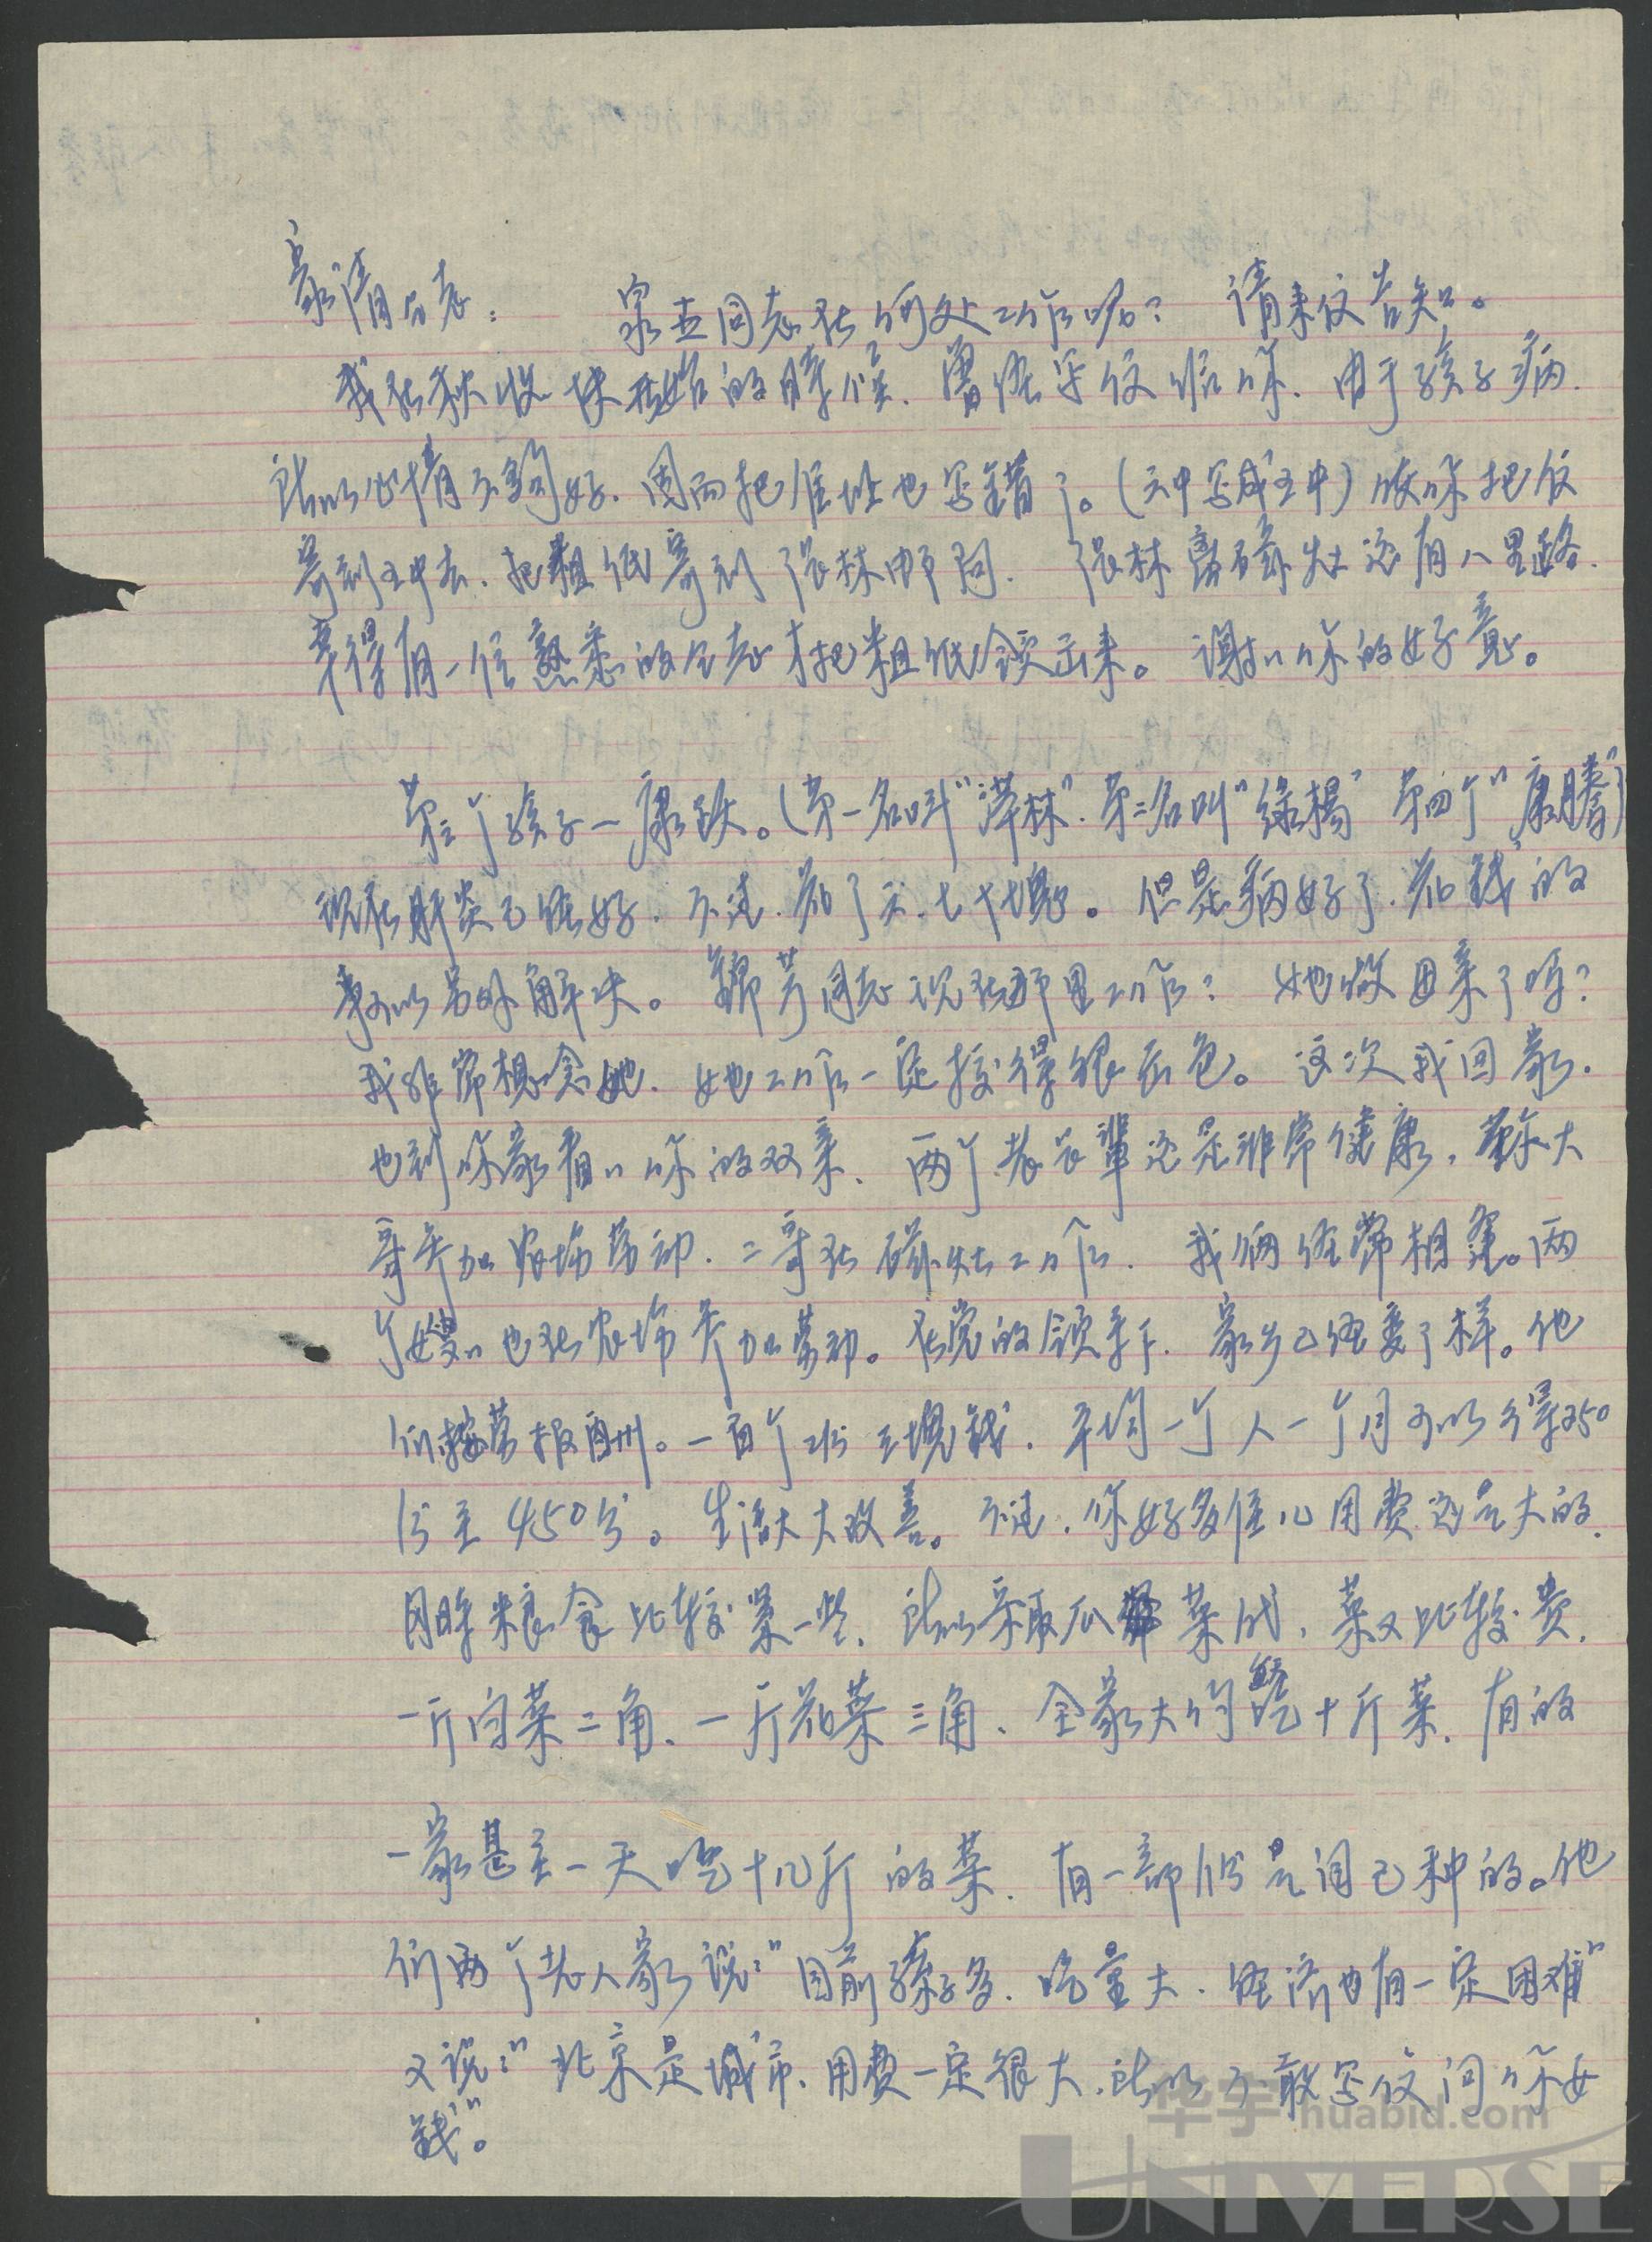 家清同志: 家五同志在何处工作呢? 请来信告知。
我在秋收快开始的时候、曾经写信给你、由于孩子病、
所以心情不够好、因而把住址也写错了。(六中写成五中) 使你把信
寄到五中去、把粗纸寄到张林邮局、 张林离磁灶还有八里路、
幸得有一位熟悉的同志才把粗纸领出来。 谢〻你的好意。
第三个孩子一康跃。(第一名叫"泽林"、第二名叫"绿杨" 第四个"康腾")
现在肝炎已经好、不过、花了六、七十块。 但是病好了、花钱的
事可以另外解决。 锦芳同志现在那里工作? 她做母亲了吗?
我非常想念她、她工作一定搞得很出色。 这次我回家、
也到你家看〻你的双亲、 两个老长辈还是非常健康,你大
哥参加农场劳动、二哥在磁灶工作、 我俩经常相逢。两
个嫂〻也在农场参加劳动。在党的领导下、家乡已经变了样。他
们按劳报酬。一百个工分三块钱、平均一个人一个月可以得350
分至450分。生活大大改善。不过、你好多侄儿用费还是大的、
同时粮食比较紧一些、所以采取瓜菜代、菜又比较贵、
一斤白菜二角、一斤花菜三角、全家大约吃十斤菜、有的
一家甚至一天吃十几斤的菜、有一部份是自己种的。他
们两个老人家说:"目前孩子多、吃量大、经济也有一定困难"
又说:"北京是城市、用费一定很大、所以不敢写信问你要
钱"。
华宇 huabid.com
UNIVERSE